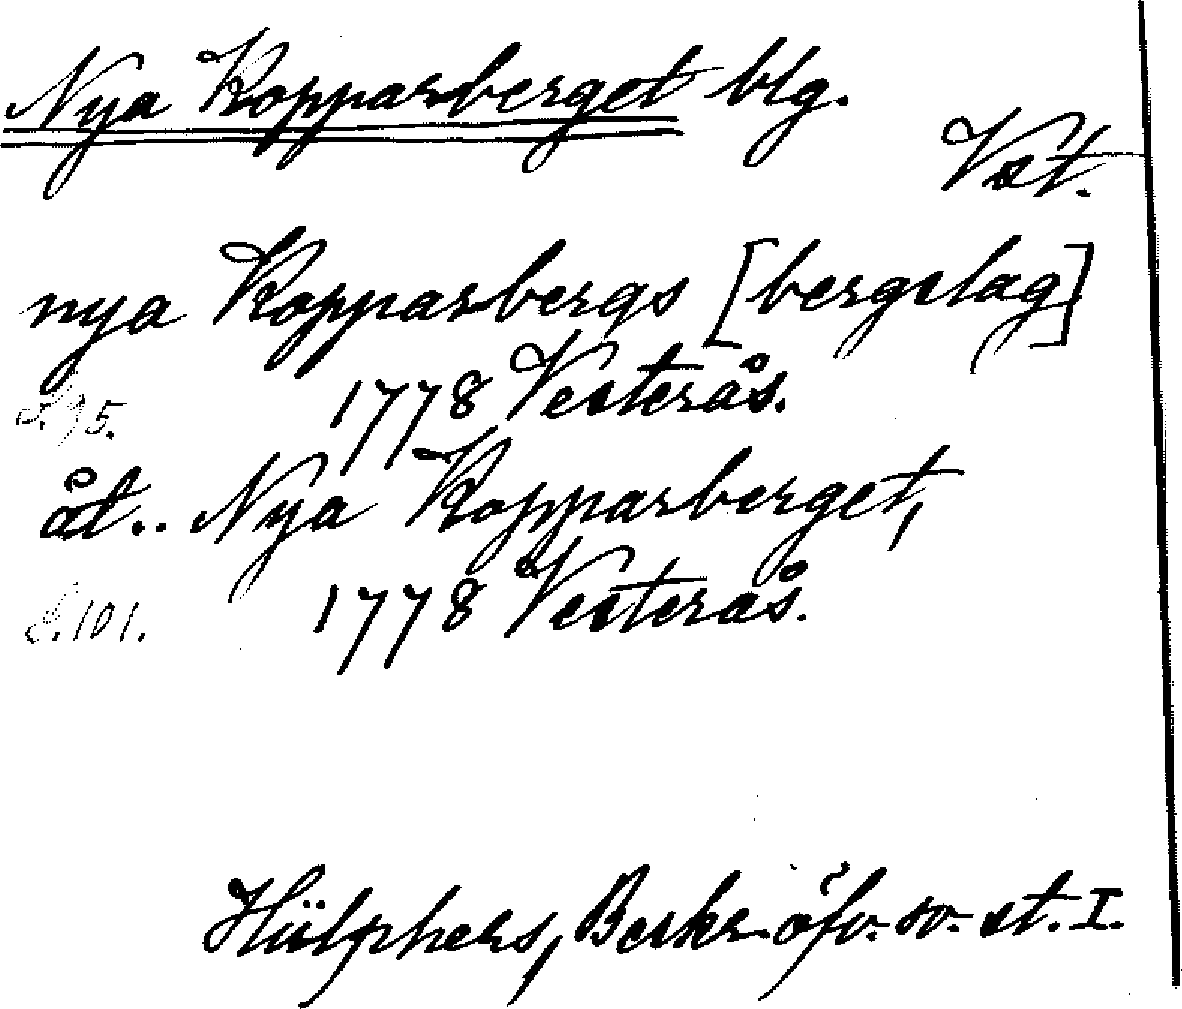 Nya Kopparberget blg.
Vst.
nya Kopparbergs [bergslag]
S. 95. 1778 Vesterås.
åt.. Nya Kopparberget,
S. 101. 1778 Vesterås.
Hülphers, Beskr. öfv. sv. st. I.